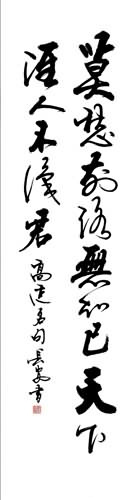 莫愁前路無知己天下
誰人不識君
高適句